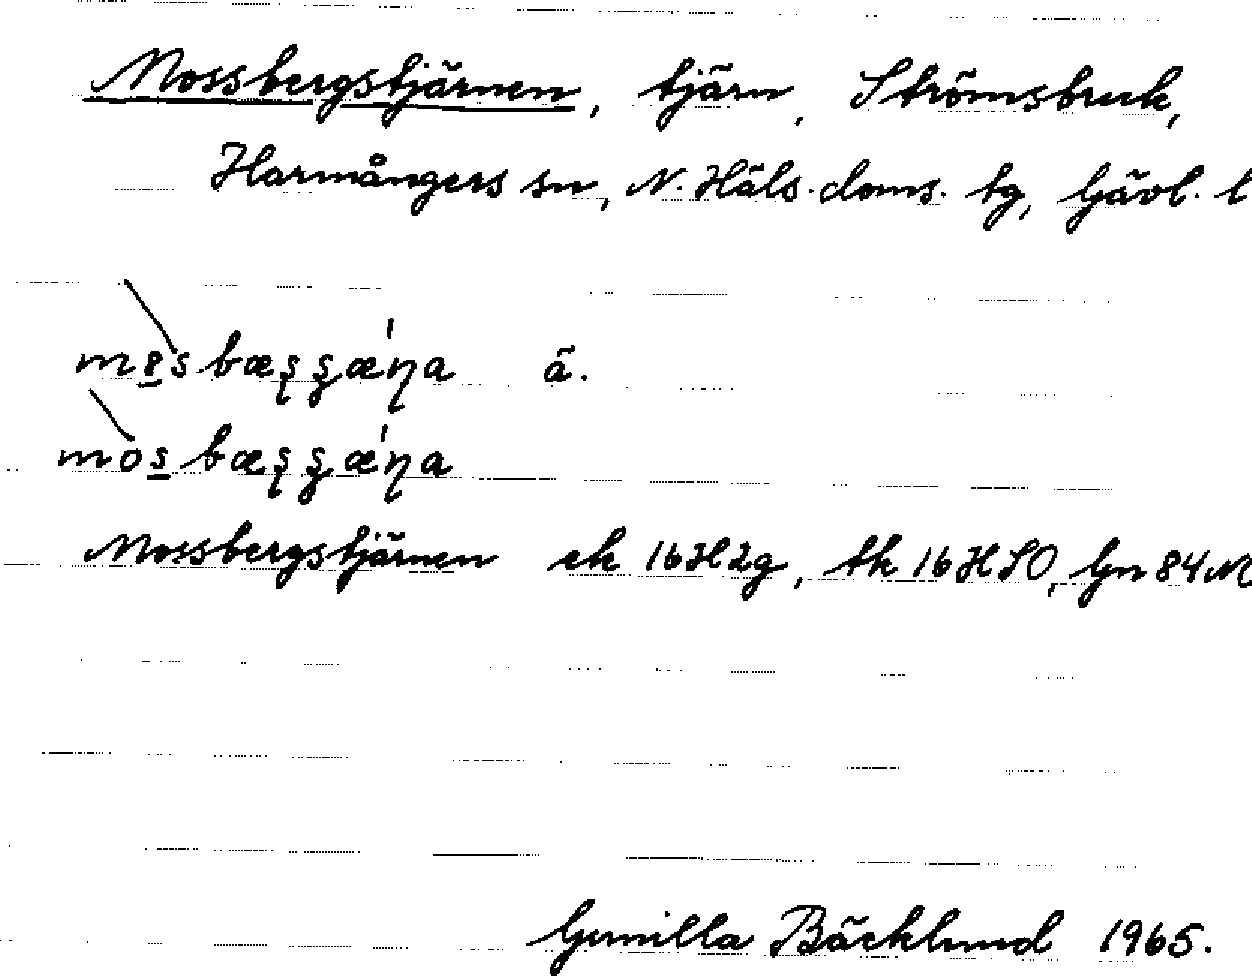 Mossbergstjärnen, tjärn, Strömsbruk,
Harmångers sn, N. Häls. doms. tg, Gävl. l
ä.
Mossbergstjärnen ek 16H2g, tk 16HSO, Gn 84 M
Gunilla Bäcklund 1965.